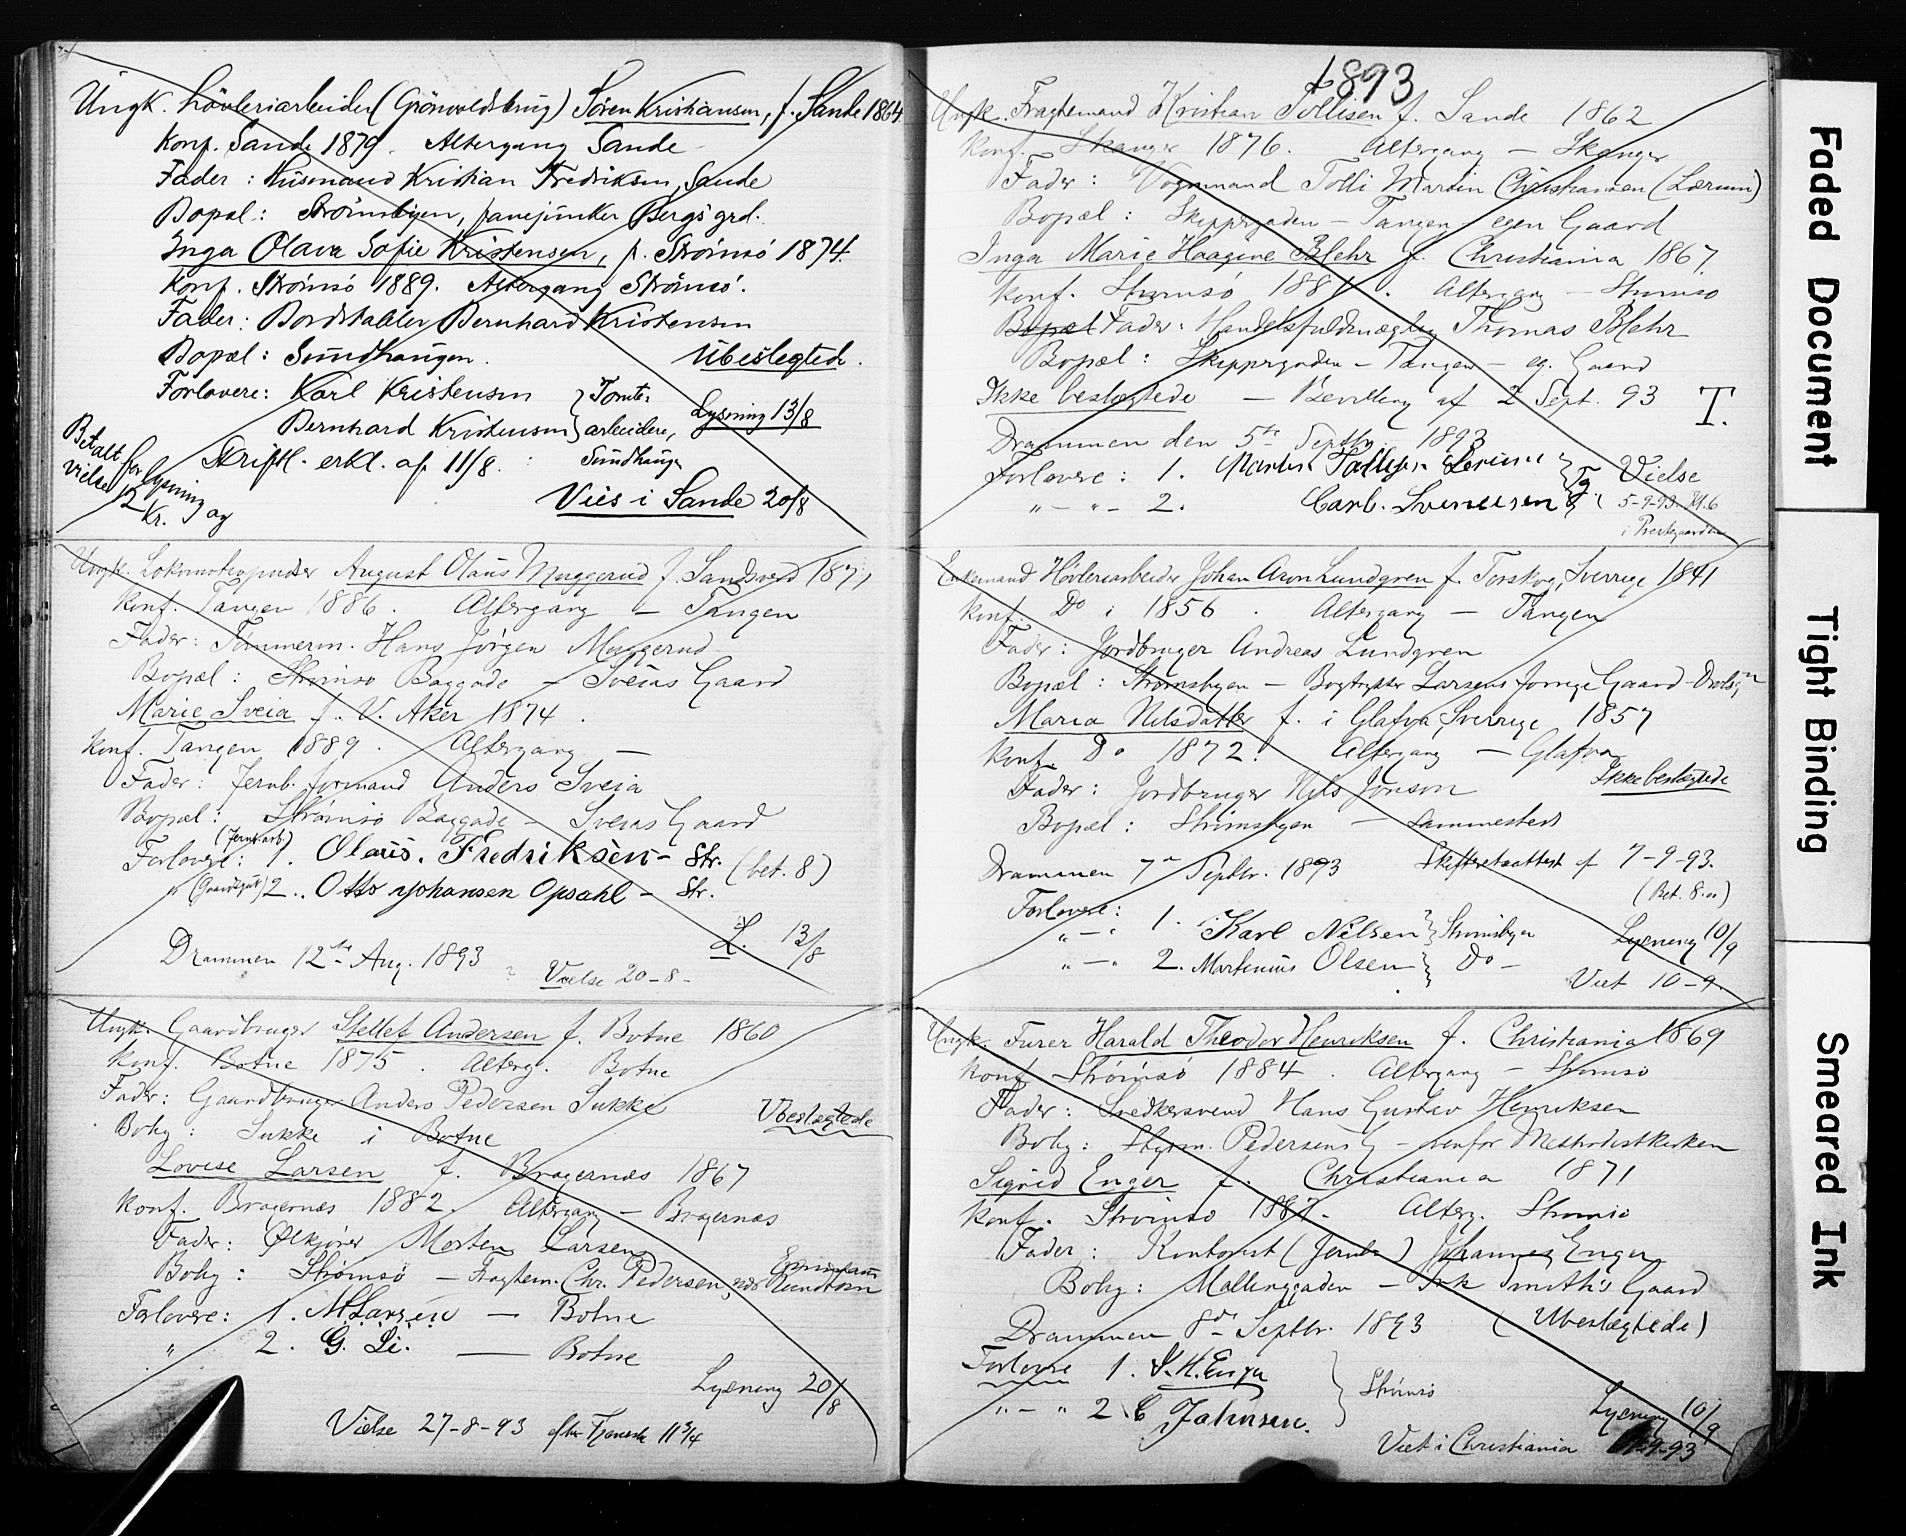 Ungk. Høvleriarbeider (Grönvoldsbrug) Søren Kristiansen, f. Sande 1864.
Konf. Sande 1879. Altergang Sande
Fader: Husmand Kristian Fredriksen, Sande
Bopæl: Strømsbyen, Bergs grd.
Inga Olava Sofie Kristensen, f. Strømsö 1874.
Konf. Strømsö 1889. Altergang Strömsö.
Fader: Bordstabler Bernhard Kristensen
Bopæl: Sundhaugen. Ubeslegtede.
Forlovere: Karl Kristensen } Tomte-
Bernhard Kristensen } arbeidere, Lysning 13/8
Skriftl. erkl. af 11/8. Sundhaugen
Betalt for lysning og
vielse 12 Kr.
Vies i Sande 20/8
Ungk. Lokomotivpudser August Olaus Muggerud f. Sandsverd 1871
Konf. Tangen 1886. Altergang — Tangen
Fader: Tømmerm. Hans Jørgen Muggerud
Bopæl: Strømsø Baggade — Sveias Gaard
Marie Sveia f. V. Aker 1874.
Konf. Tangen 1889. Altergang —
Fader: Jernb. formand Anders Sveia
Bopæl: Strømsö Baggade — Sveias Gaard
(Jernb.arb.)
Forlovere: 1. Olaus. Fredriksen — Str. (bet. 8)
2. Otto Johansen Opsahl — Str.
L. 13/8
Drammen 12te Aug. 1893
Vielse 20-8-
Ungk. Gaardbruger Stellef Andersen f. Botne 1860
Konf. Botne 1875. Alterg. Botne
Fader: Gaardbruger Anders Pedersen Sukke
Ubeslegtede
Bolig: Sukke i Botne
Lovise Larsen f. Bragernæs 1867
Konf. Bragernæs 1882. Altergang — Bragernæs
Fader: Ølkjører Morten Larsen
Bolig: Strømsø — Fragtem. Chr. Pedersen, nær Rundtom
Forlovere: 1. M. Larsen — Botne
" 2. G. Li. — Botne
Lysning 20/8
Vielse 27-8-93 efter Tjeneste 11 3/4
1893
Ungk. Fragtemand Kristian Tollisen f. Sande 1862
Konf. Skanger 1876. Altergang — Skanger
Fader: Vognmand Tolli Martin Christiansen (Lærum)
Bopæl: Skippergaden — Tangen — egen Gaard
Inga Marie Haagine Blehr f. Christiania 1867.
Konf. Strømsö 1881. Altergang — Strømsö
Bopæl Fader: Handelsfuldmægtig Thomas Blehr
Bopæl: Skippergaden — Tangen — eg. Gaard
Ikke beslægtede — Bevilling af 2 Sept. 93 T.
Drammen den 5te Septbr. 1893
Forlovere: 1. Martin Tollefsen Lerum } Tg Vielse
" — " — 2. Carl. Svendsen } 5-9-93. Kl. 6
i Prestegaarden
Enkemand Høvleriarbeider Johan Aron Lundgren f. Torskog, Sverrige 1841
Konf. Do i 1856. Altergang — Tangen
Fader: Jordbruger Andreas Lundgren
Bopæl: Strømsbyen — Bogtrykker Larsens forrige Gaard
Maria Nilsdatter f. i Glafva, Sverrige, 1857
Konf. Do 1872. Altergang — Glafva
Ikke beslægtede
Fader: Jordbruger Nils Jonson
Bopæl: Strømsbyen — sammesteds
Drammen 7de Septbr. 1893 Skifteretsattest af 7-9-93.
(Bet. 8.00)
Forlovere: 1. Karl Nilsen } Strømsbyen Lysning 10/9
" — " 2. Martinius Olsen } Do —
Viet 10-9.
Ungk. Furer Harald Theodor Henriksen f. Christiania 1869
Konf. Strømsö 1884. Altergang — Strømsö
Fader: Snedkersvend Hans Gustav Henriksen
Bolig: Styrm. Pedersens G — ovenfor Methodistkirken
Sigrid Enger f. Christiania 1871
Konf. Strømsö 1887. Alterg. Strømsö
Fader: Kontorist (Jernb.) Johannes Enger
Bolig: Mallinggaden — Smith's Gaard
Drammen 8de Septbr. 1893 (Ubeslægtede)
Forlovere 1. J. H. Enger } Strømsö
" — " 2. C Johnsen.
Lysning 10/9
Viet i Christiania -9-93
Faded Document
Tight Binding
Smeared Ink